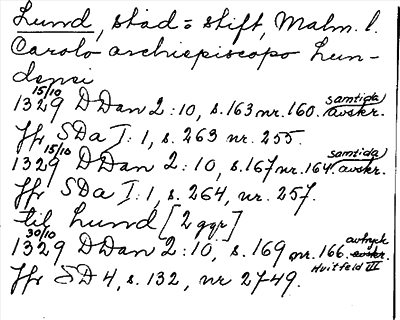 Lund, stad = stift, Malm. l.
Carolo archiepiscopo Lun-
densi
15/10
1329 DDan 2:10, s.163 nr.160. samtida avskr.
Jfr SDa I:1, s. 263 nr. 255.
15/10
1329 DDan 2:10, s.167 nr.164. samtida avskr.
Jfr SDa I:1, s. 264, nr. 257.
til Lund [2 ggr]
30/10
1329 DDan 2:10, s.169 nr.166. avtryck avskr.
Huitfeld III
Jfr SD 4, s. 132, nr 2749.